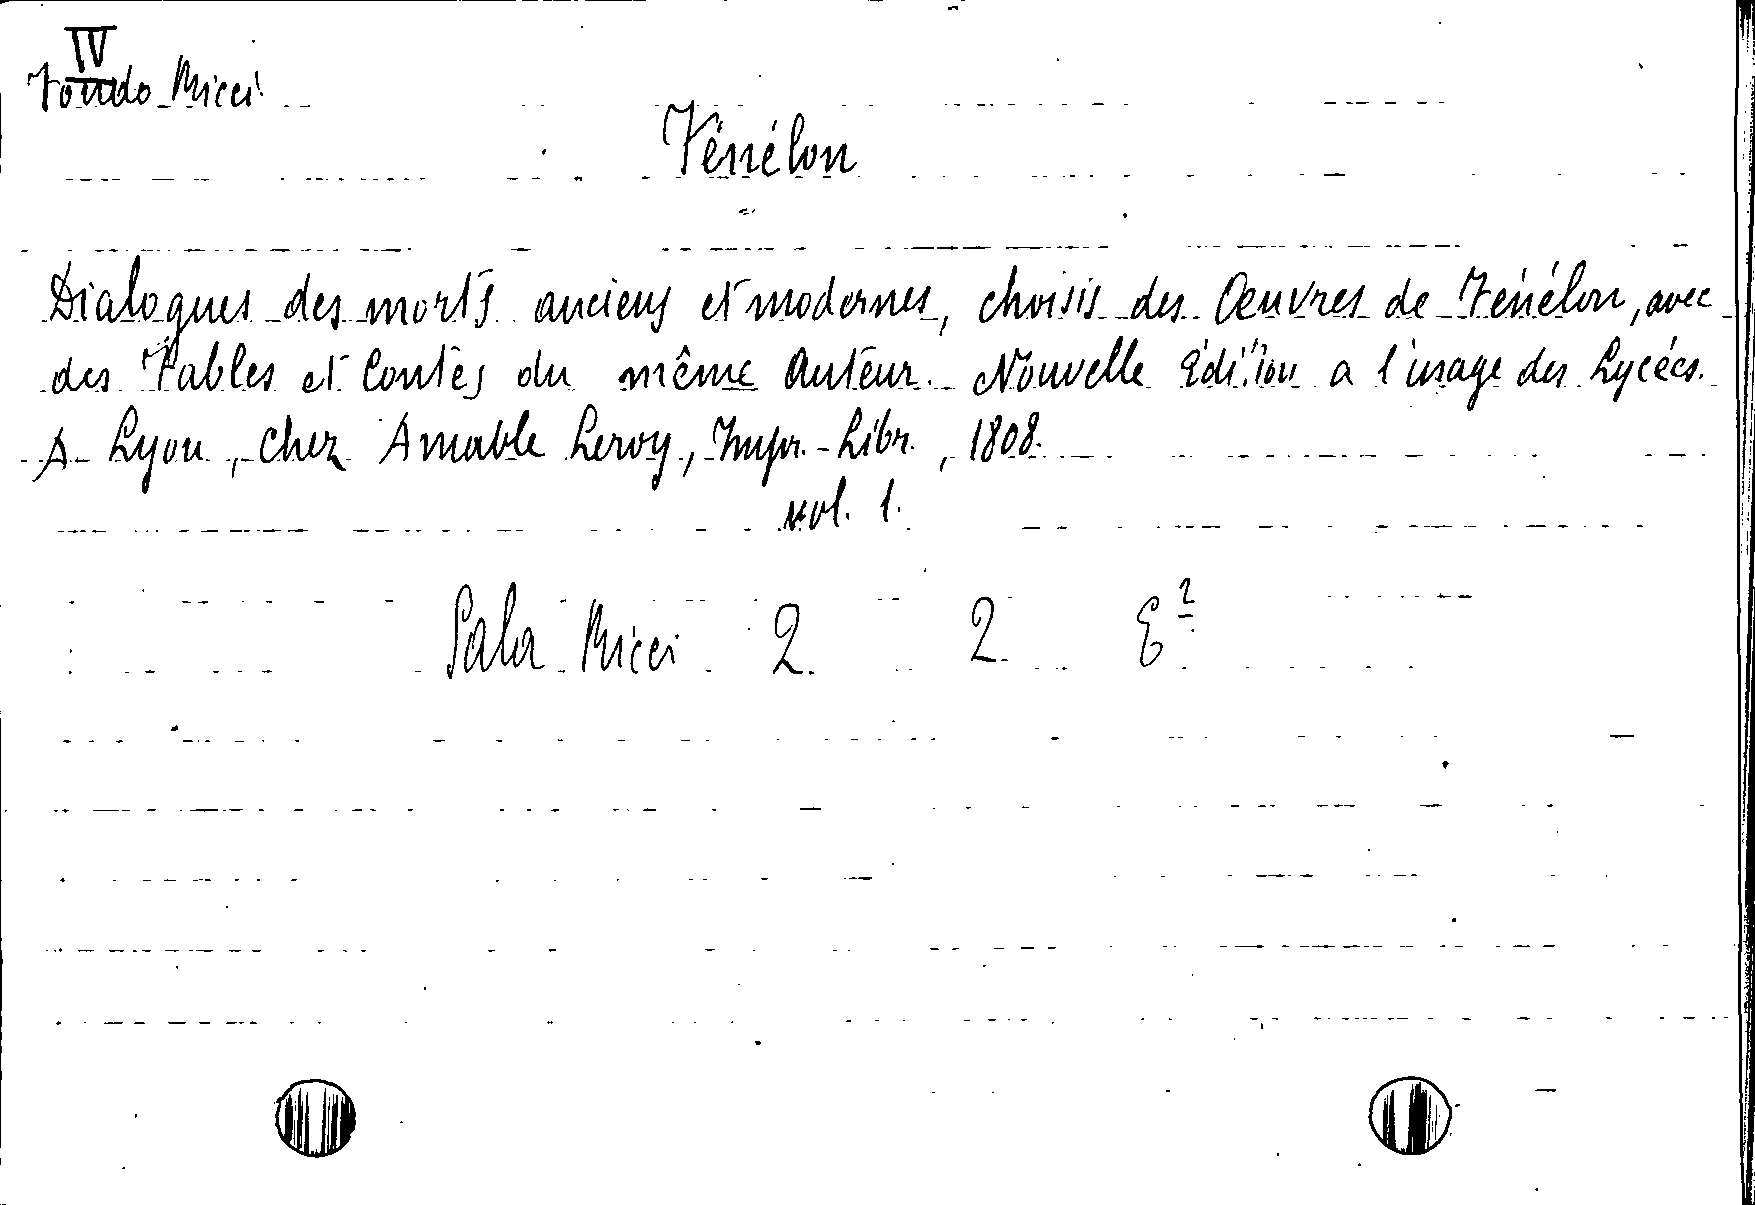 IV
Fondo Ricci
Fénélon
Dialogues des morts anciens et modernes, choisis des Œuvres de Fénélon, avec
des Fables et Contes du même Auteur. Nouvelle Edition a l'usage des Lycées.
A Lyon, chez Amable Leroy, Impr.-Libr., 1808.
vol. 1.
Sala Ricci 2. 2. E²